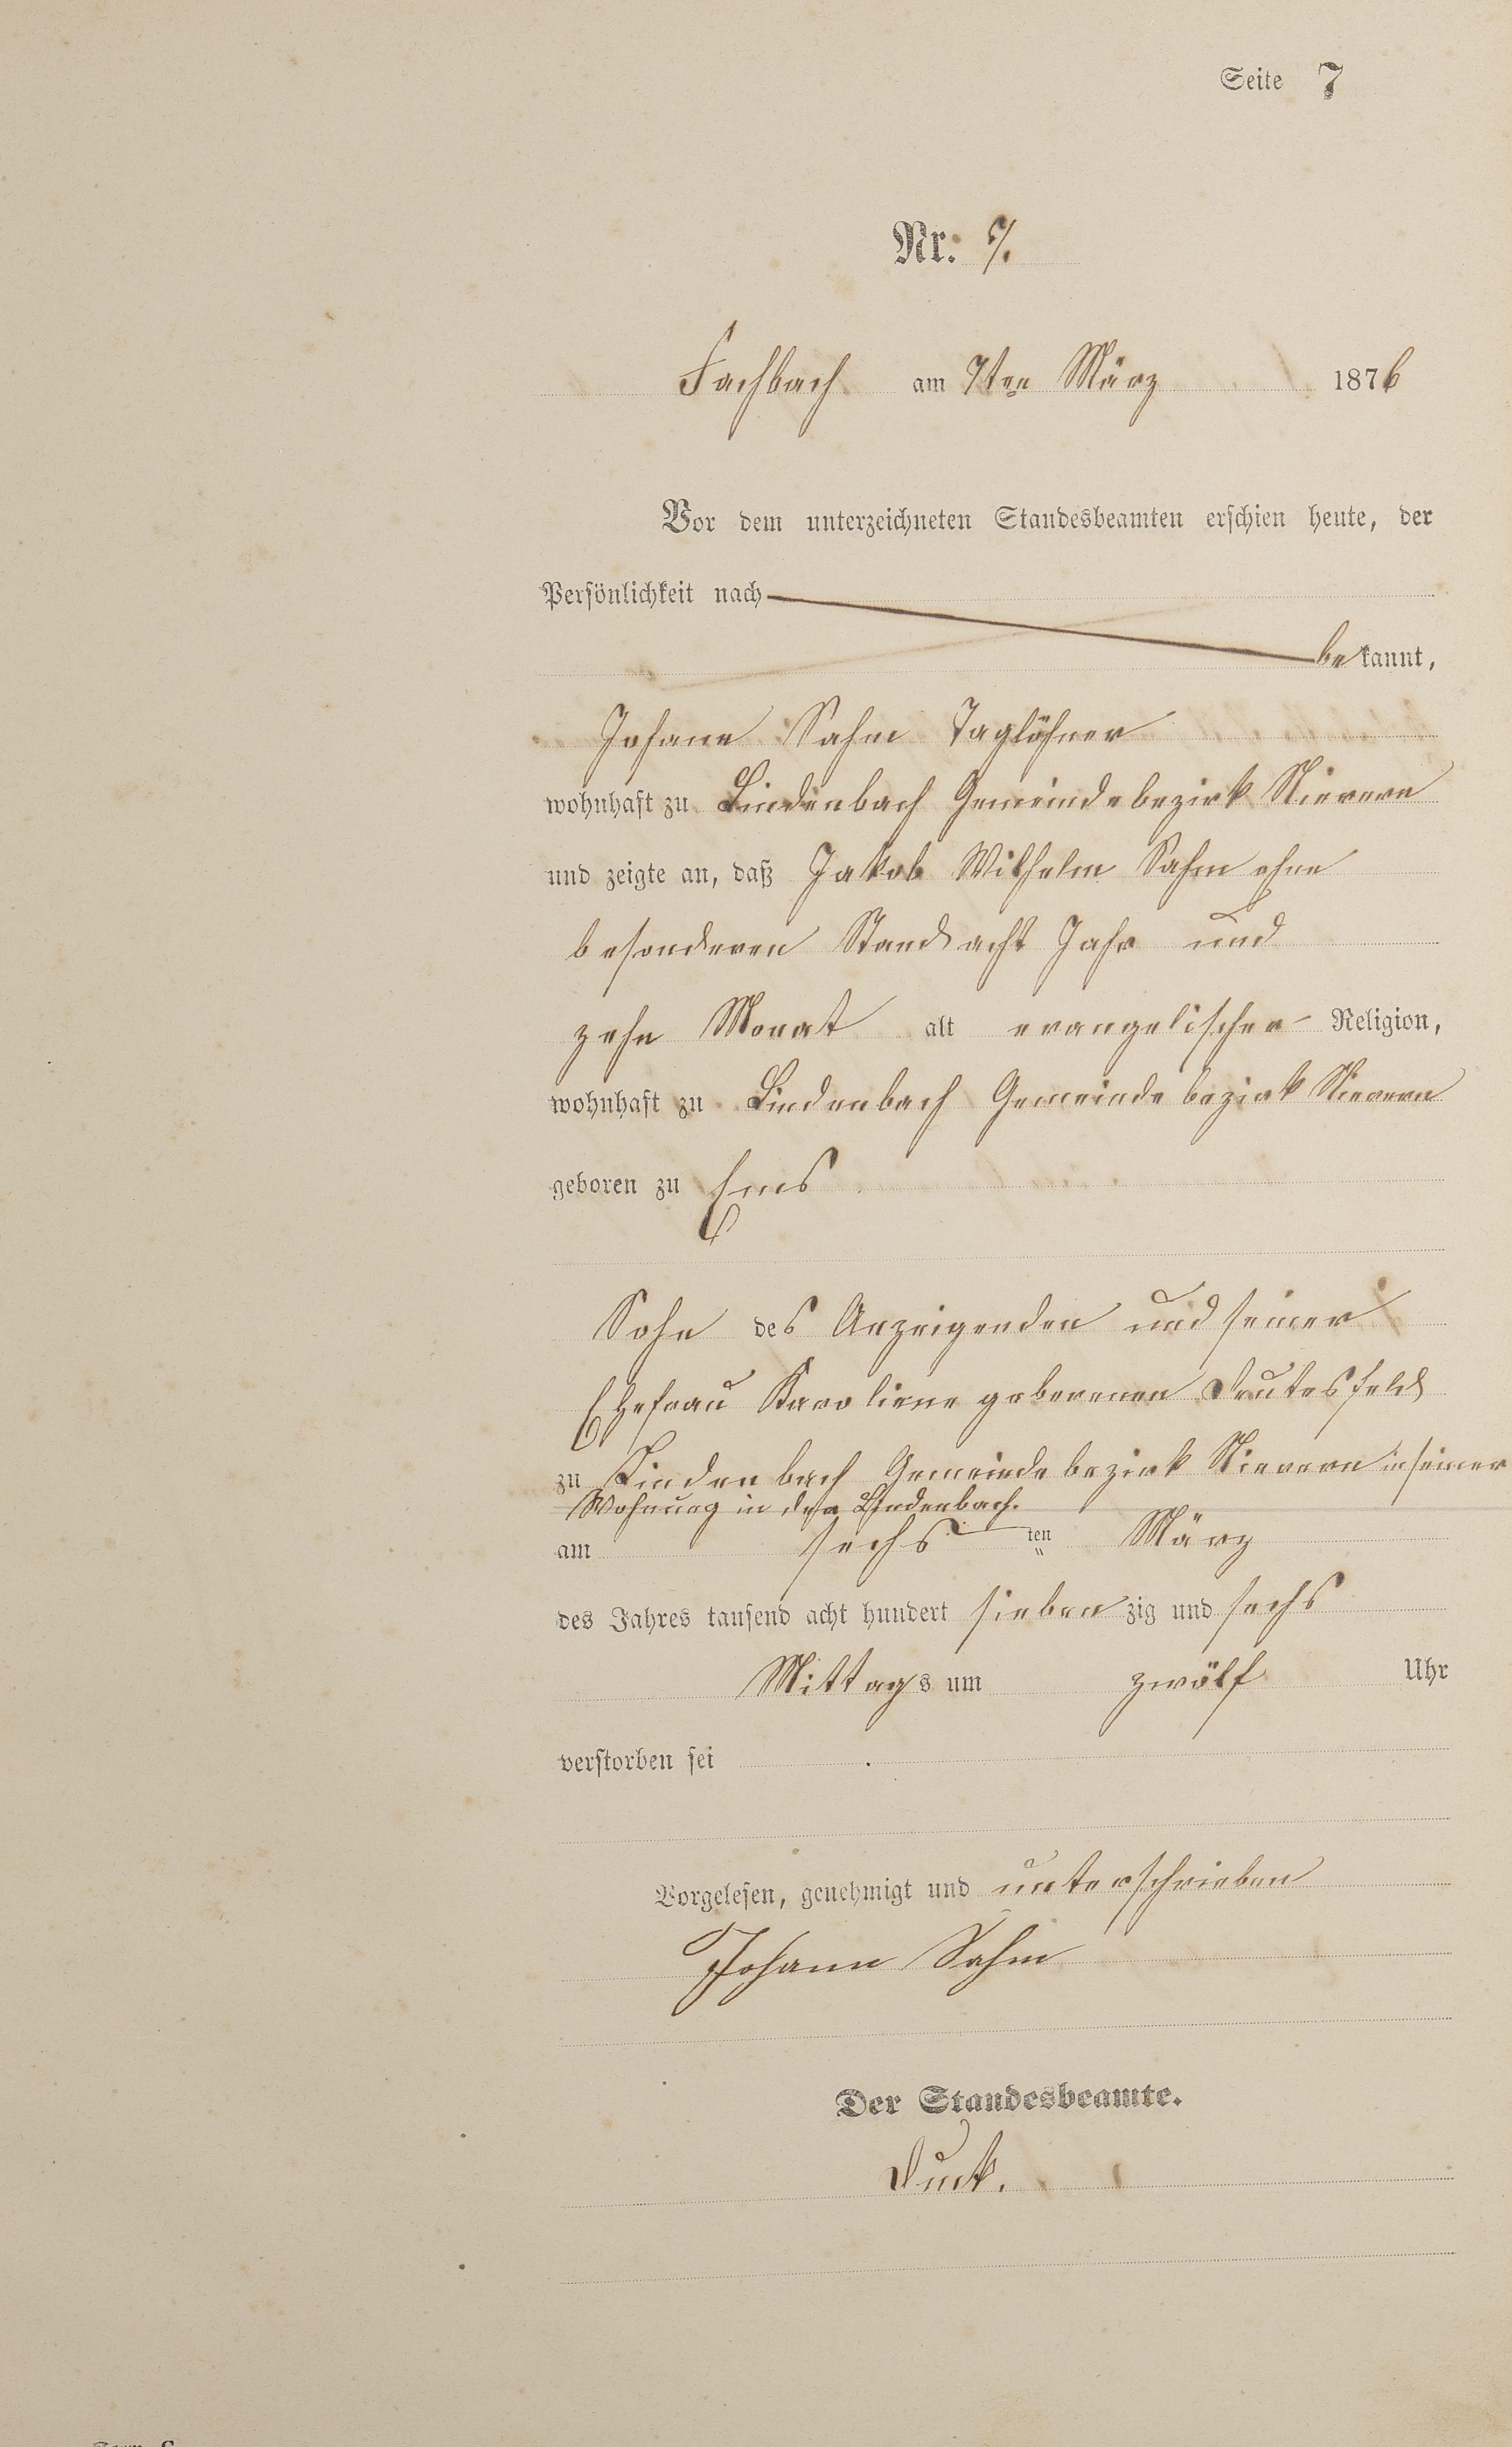 Seite 7
Nr. 7.
Fachbach am 7ten März 1876
Vor dem unterzeichneten Standesbeamten erschien heute, der
Persönlichkeit nach
bekannt,
Johann Sahm Taglöhner
wohnhaft zu Lindenbach Gemeindebezirk Nievern
und zeigte an, daß Jakob Wilhelm Sahm ohne
besonderen Stand acht Jahr und
zehn Monat alt evangelischer Religion,
wohnhaft zu Lindenbach Gemeindebezirk Nievern
geboren zu Ems
Sohn des Anzeigenden und seiner
Ehefrau Karoliene geborenen Deutesfeld
zu Lindenbach Gemeindebezirk Nievern in seiner
Wohnung in der Lindenbach.
am sechsten März
des Jahres tausend acht hundert siebenzig und sechs
Mittags um zwölf Uhr
verstorben sei
Vorgelesen, genehmigt und unterschrieben
Johann Sahm
Der Standesbeamte.